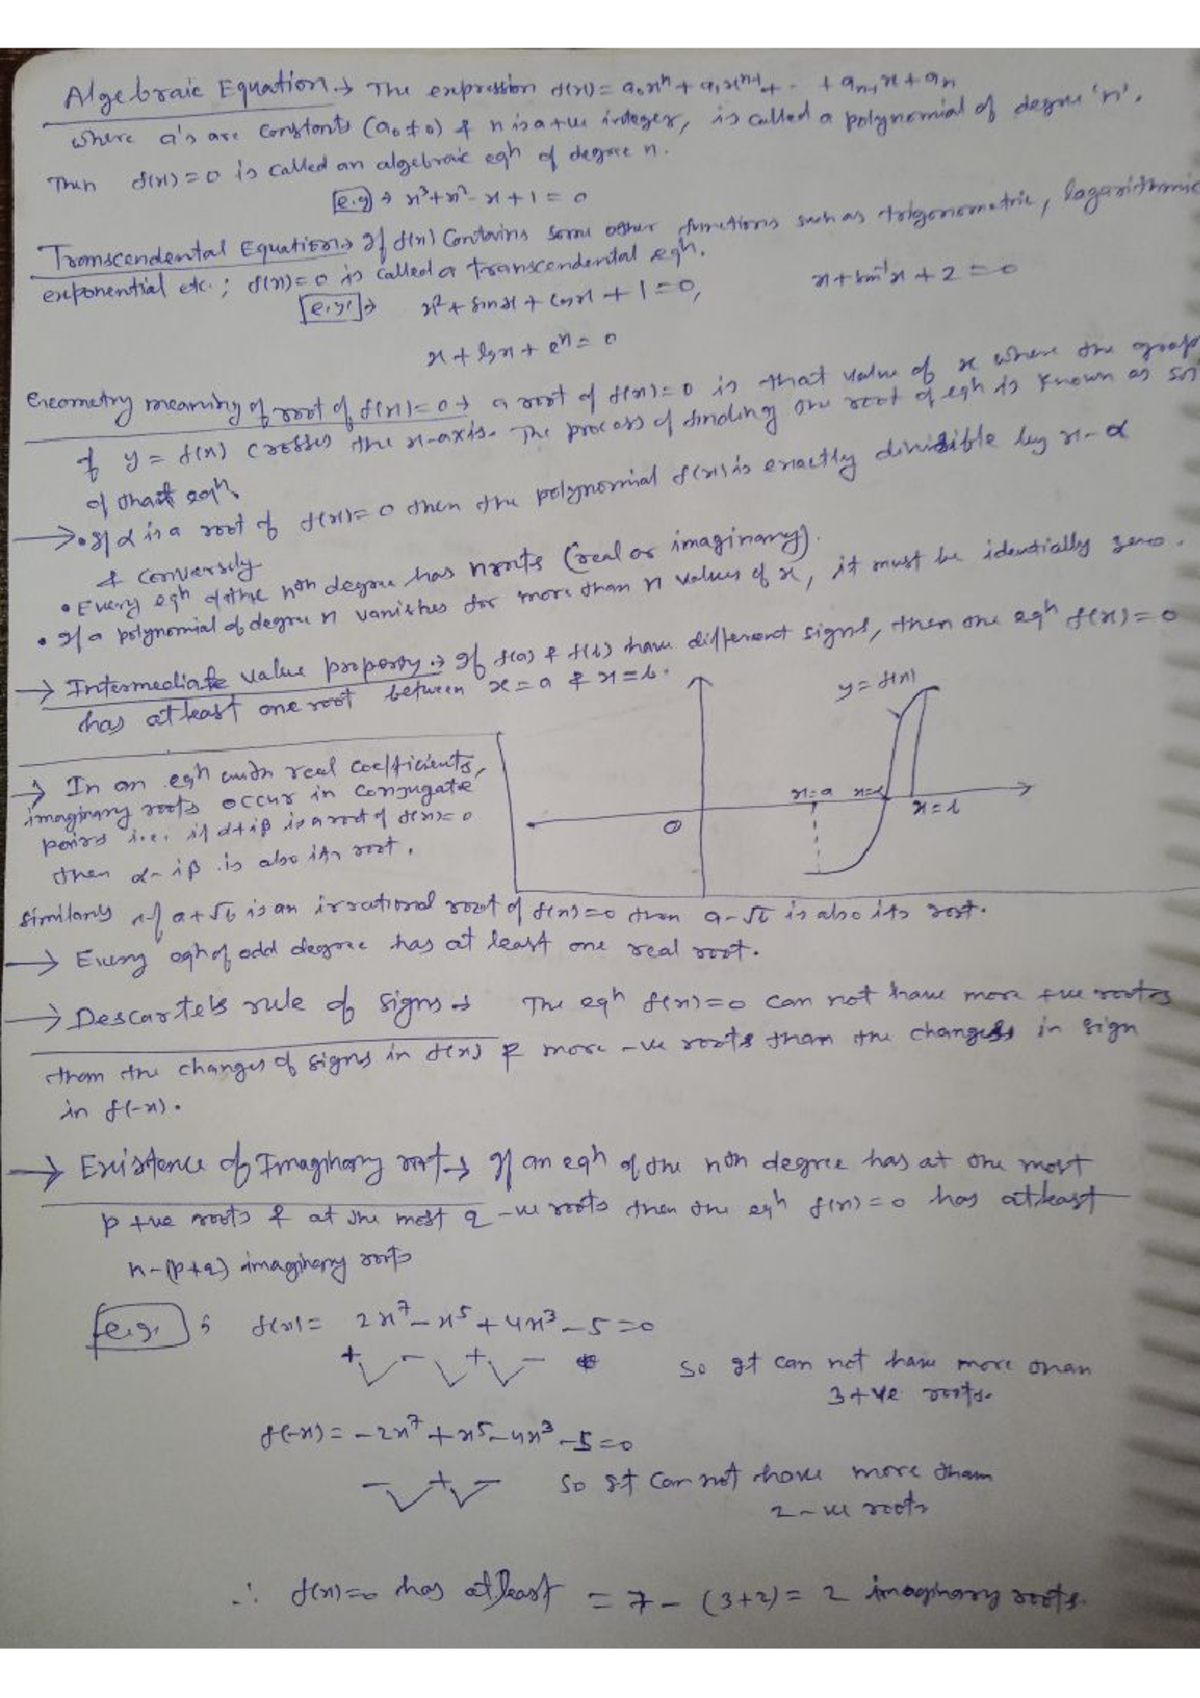 Algebraic Equation → The expression f(x) = a₀xⁿ + a₁xⁿ⁻¹ + - - + aₙ₋₁x + aₙ
where a's are constants (a₀ ≠ 0) & n is a +ve integer, is called a polynomial of degree 'n'.
Then f(x) = 0 is called an algebraic eqⁿ of degree n.
e.g → x³ + x² - x + 1 = 0
Transcendental Equation → If f(x) contains some other functions such as trigonometric, logarithmic
exponential etc.; f(x) = 0 is called a transcendental eqⁿ.
e.g. → x² + sinx + cosx + 1 = 0, x + tan⁻¹x + 2 = 0
x + logx + eˣ = 0
Geometry meaning of root of f(x) = 0 → a root of f(x) = 0 is that value of x where the grap
of y = f(x) crosses the x-axis. The process of finding the root of eqⁿ is known as sol
of that eqⁿ.
→ • If α is a root of f(x) = 0 then the polynomial f(x) is exactly divisible by x - α
& conversly
• Every eqⁿ of the nth degree has n roots (real or imaginary).
• If a polynomial of degree n vanishes for more than n values of x, it must be identially zero.
→ Intermediate value property → If f(a) & f(b) have different signs, then the eqⁿ f(x) = 0
has at least one root between x = a & x = b.
y = f(x)
x=a x=α x=b
O
→ In an eqⁿ with real coefficients,
imaginary roots occur in conjugate
pairs i.e. if α+iβ is a root of f(x)=0
then α-iβ is also its root.
similarly if a+√b is an irrational root of f(x)=0 then a-√b is also its root.
→ Every eqⁿ of odd degree has at least one real root.
→ Descarte's rule of signs → The eqⁿ f(x)=0 can not have more +ve roots
than the changes of signs in f(x) & more -ve roots than the changes in sign
in f(-x).
→ Existence of Imaginary root → If an eqⁿ of the nth degree has at the most
p +ve roots & at the most q -ve roots then the eqⁿ f(x) = 0 has atleast
n-(p+q) imaginary roots
e.g. ; f(x) = 2x⁷ - x⁵ + 4x³ - 5 = 0
+ - + -
So It can not have more than
3 +ve roots.
f(-x) = -2x⁷ + x⁵ - 4x³ - 5 = 0
- + -
So It can not have more than
2 -ve roots
∴ f(x)=0 has atleast = 7 - (3+2) = 2 imaginary roots.